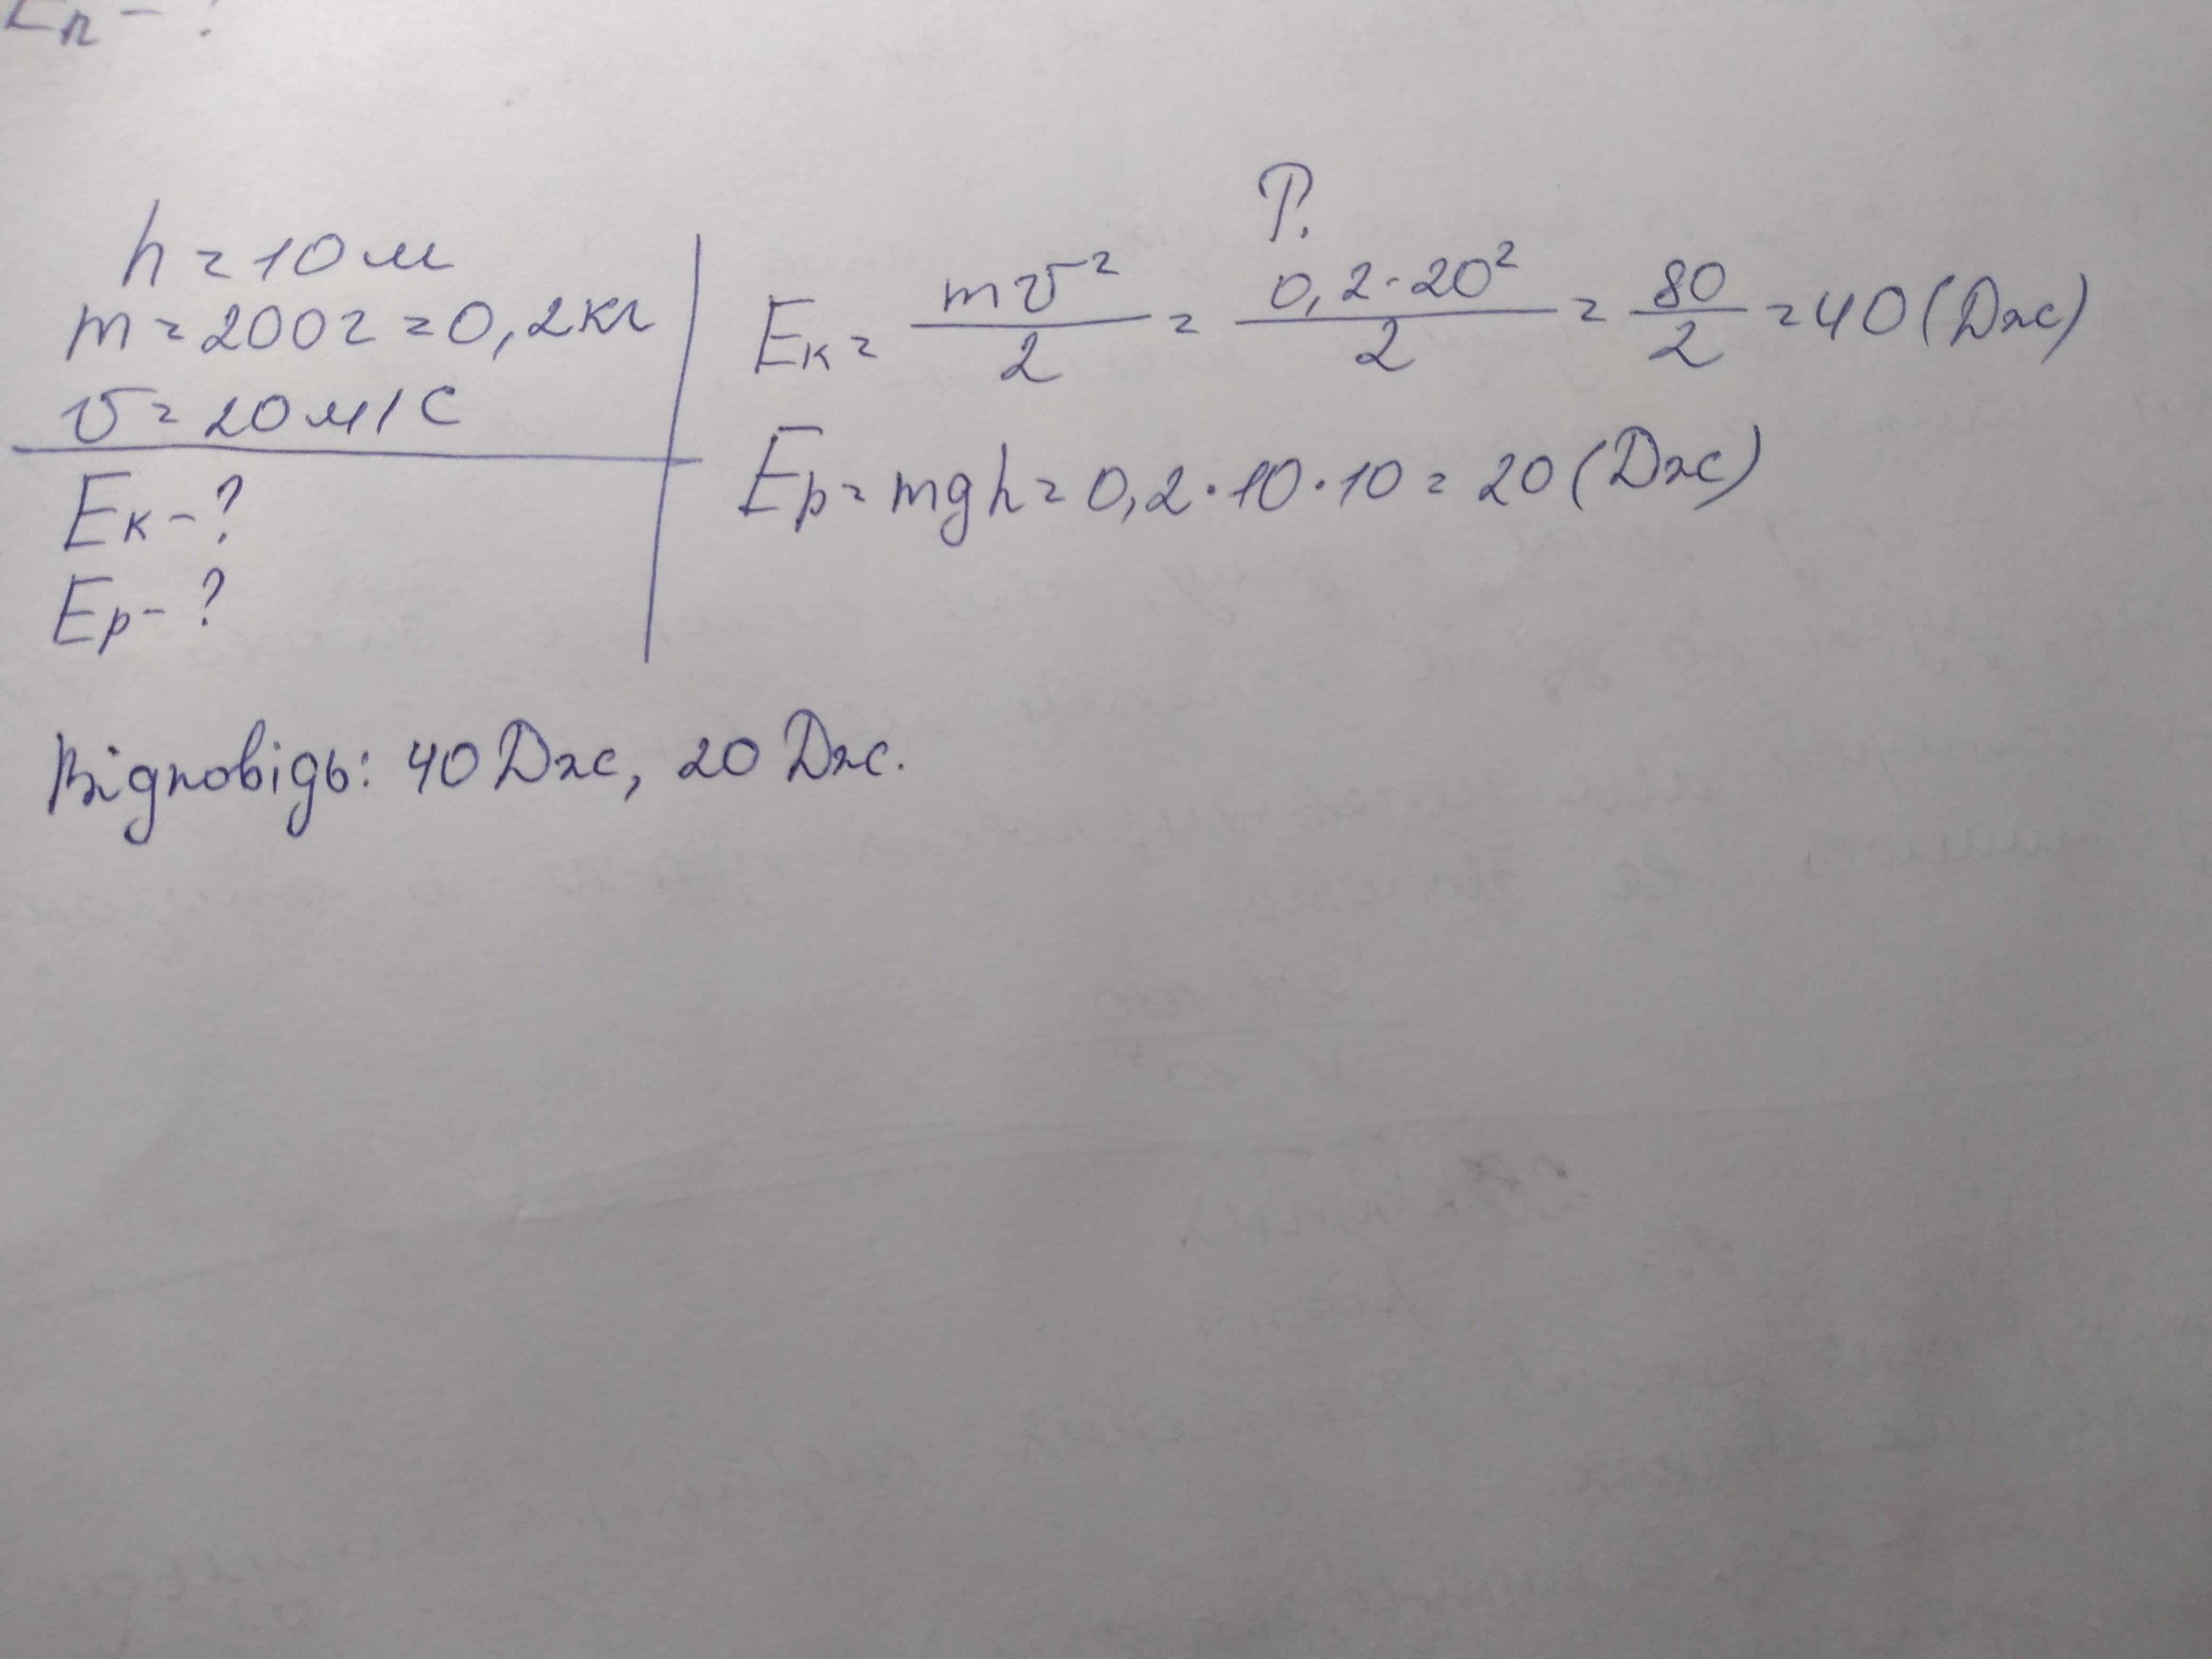 Еп - ?
Р.
h = 10 м
m = 200г = 0,2кг
v = 20 м/с
Eк - ?
Ep - ?
Eк = mv²/2 = 0,2·20²/2 = 80/2 = 40 (Дж)
Ep = mgh = 0,2·10·10 = 20 (Дж)
Відповідь: 40 Дж, 20 Дж.